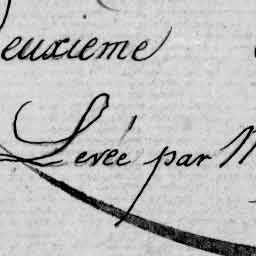 euxieme
Levée par M